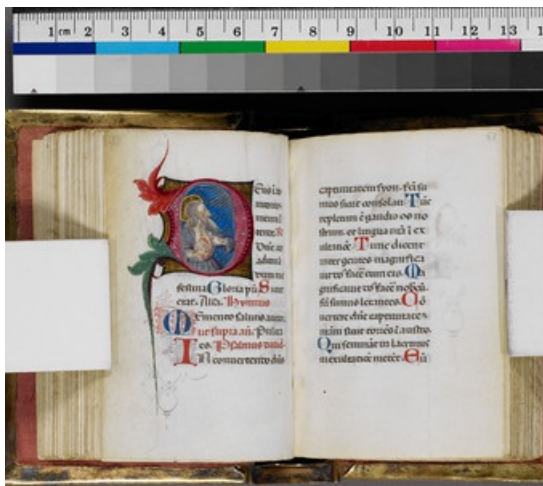 1 cm 2 3 4 5 6 7 8 9 10 11 12 13
iutorium
meum in
tende
adiuuā
dum me
festina Gloria pri Sicut
erat. Alla. Hymnus
Memento salutis auctor.
Ut supra añ. Pulcra
es. Psalmus dauid.
In conuertendo dñs
captiuitatem syon. fcti su
mus sicut consolati Tūc
repletum ē gaudio os no
strum. et lingua nrā ī ex
ultatiōe Tunc dicent
inter gentes magnifica
uit dñs facē cum eis. Ma
gnificauit dñs facē nobcū
fcti sumus letantes Cō
uerte dñe captiuitatē
nrām sicut torrēs ī austro.
Qui seminant in lacrimis
in exultatiōe metēt Eū